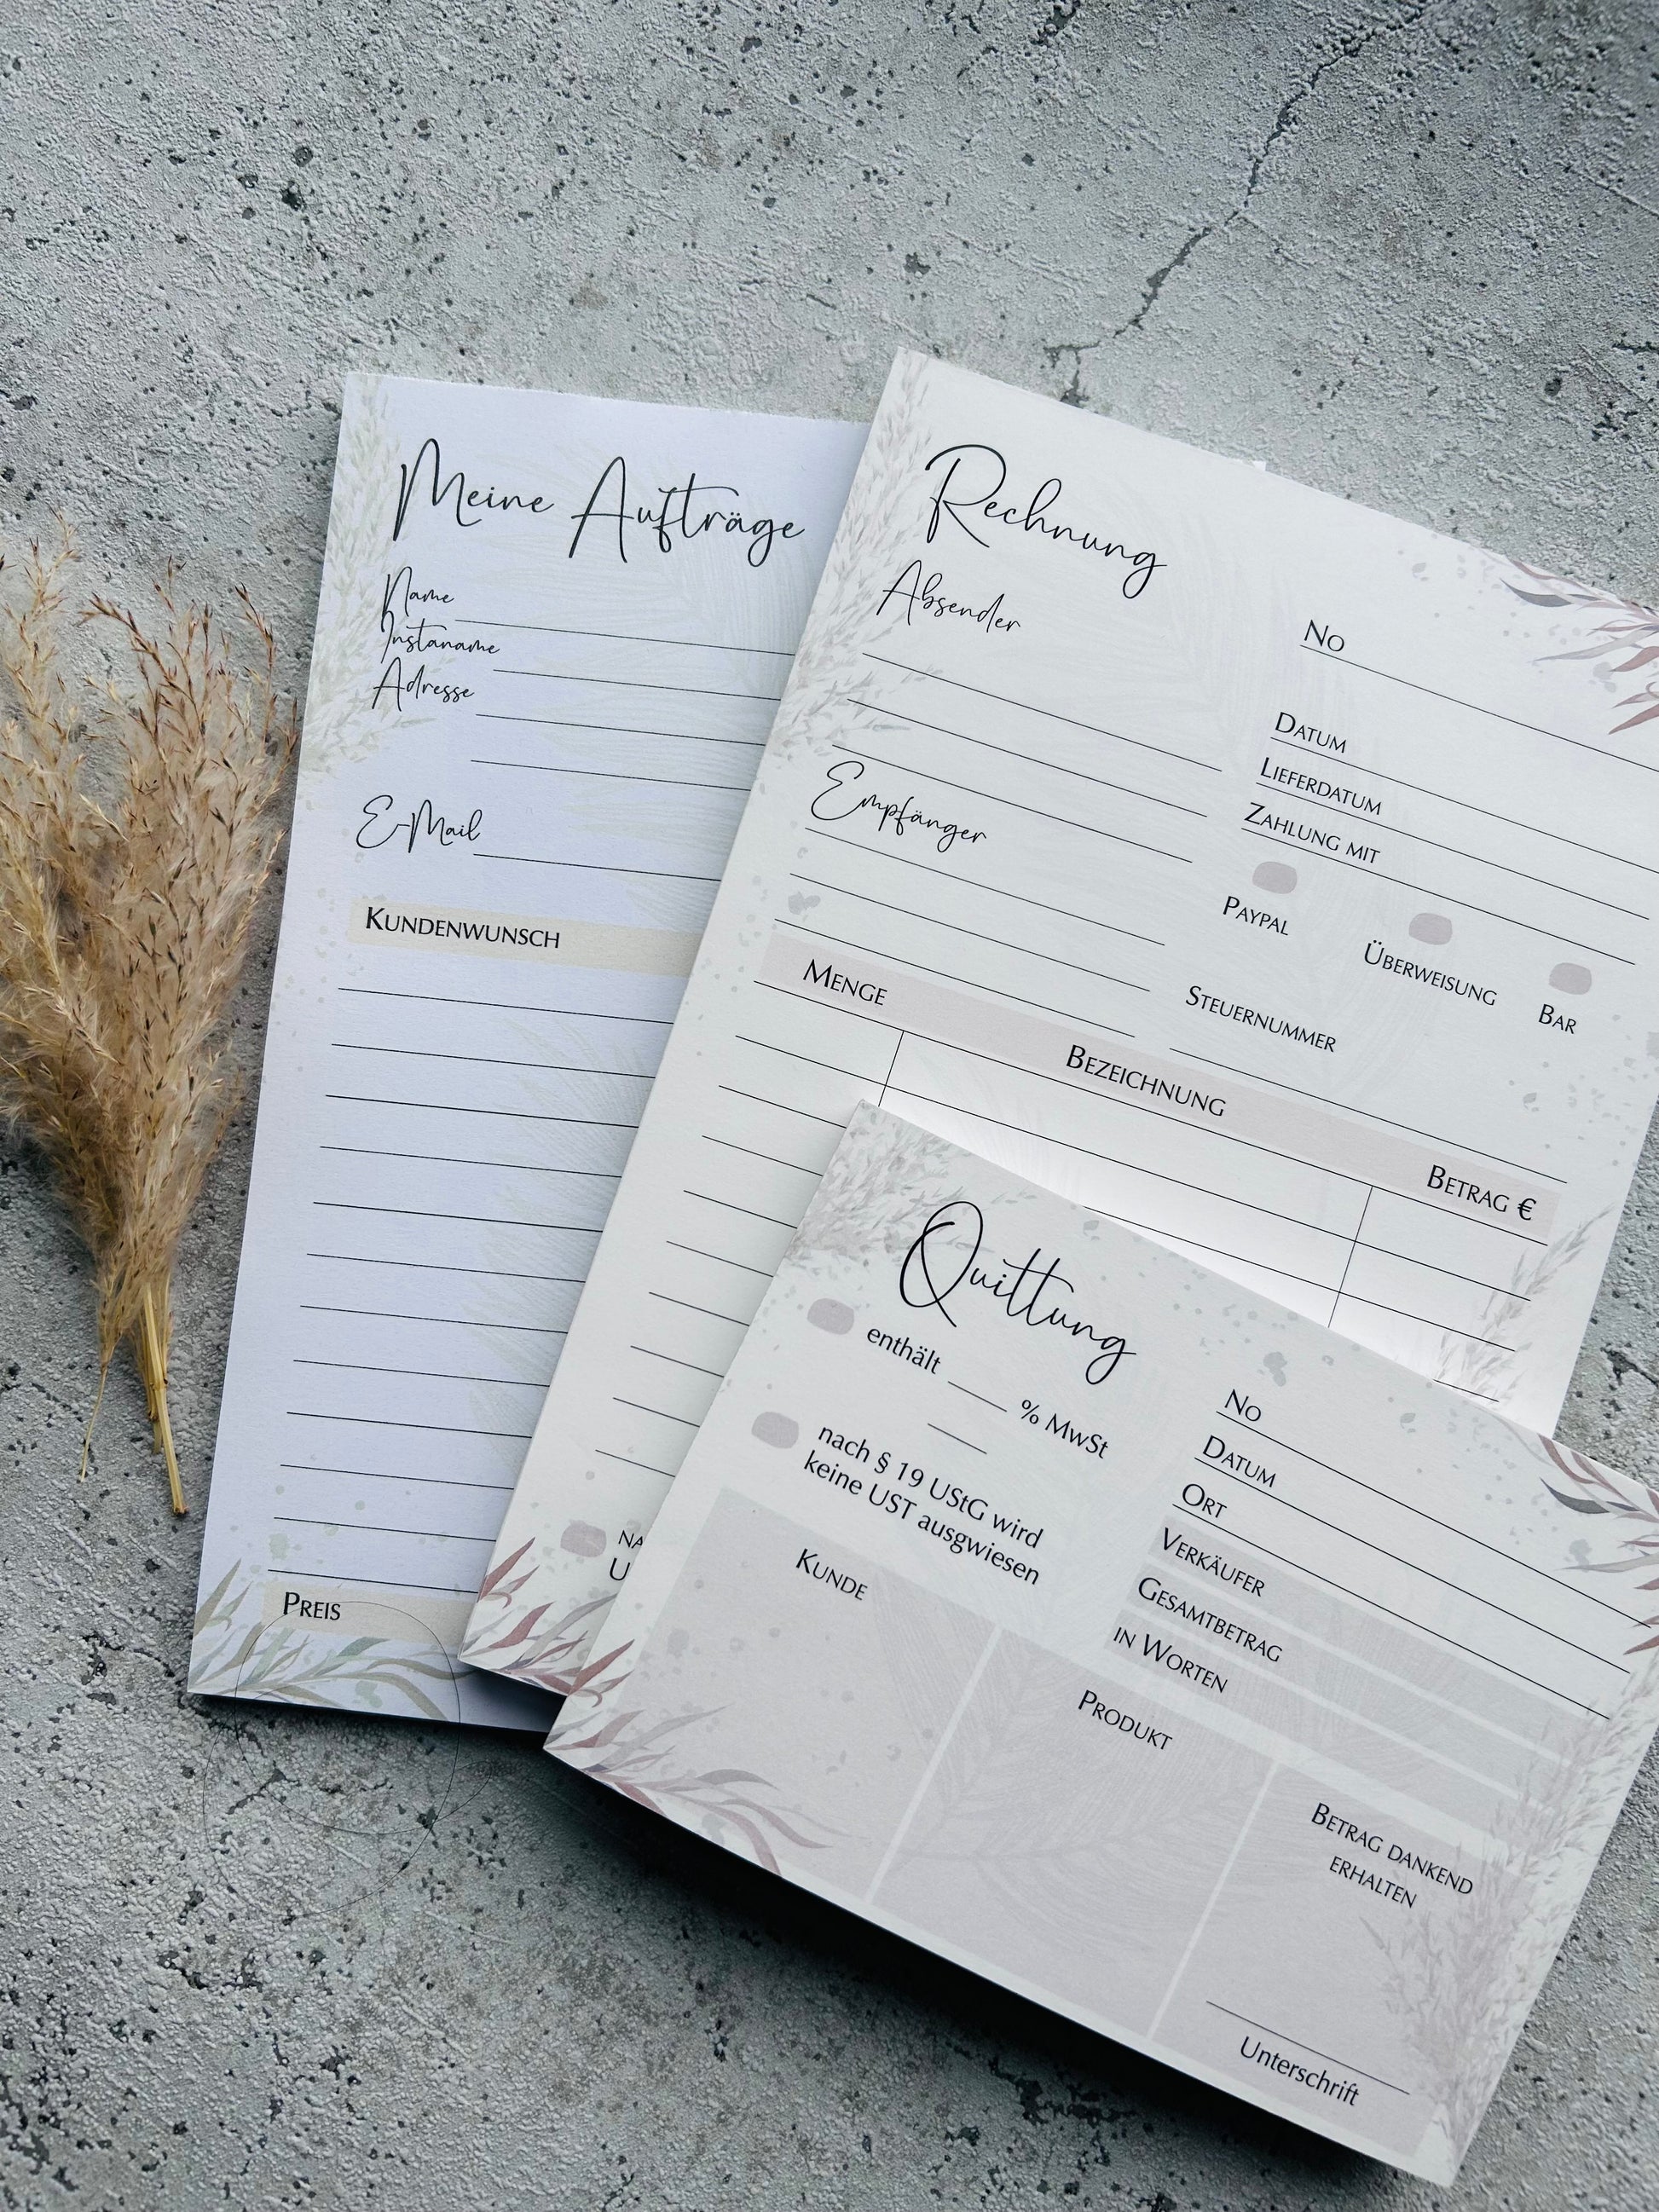 Meine Aufträge
Name
Instaname
Adresse
E-Mail
KUNDENWUNSCH
PREIS
Rechnung
Absender
NO
DATUM
LIEFERDATUM
ZAHLUNG MIT
PAYPAL
ÜBERWEISUNG
BAR
Empfänger
STEUERNUMMER
MENGE
BEZEICHNUNG
BETRAG €
NA
U
Quittung
enthält ____ % MwSt
nach § 19 UStG wird
keine UST ausgwiesen
NO
DATUM
ORT
VERKÄUFER
GESAMTBETRAG
IN WORTEN
KUNDE
PRODUKT
BETRAG DANKEND
ERHALTEN
Unterschrift